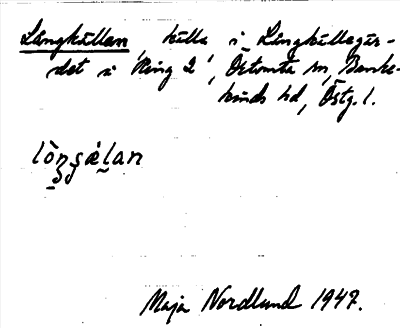 Långkällan, källa i Långkällegär-
det i Ring 2', Östomta sn, Banke-
kinds hd, Östg. l.
lòŋʂǽlan
Maja Nordlund 1947.